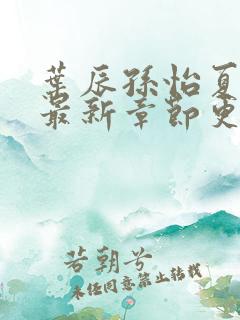 葉辰孫怡夏
最新章節更
若朝兮
未经同意禁止转载